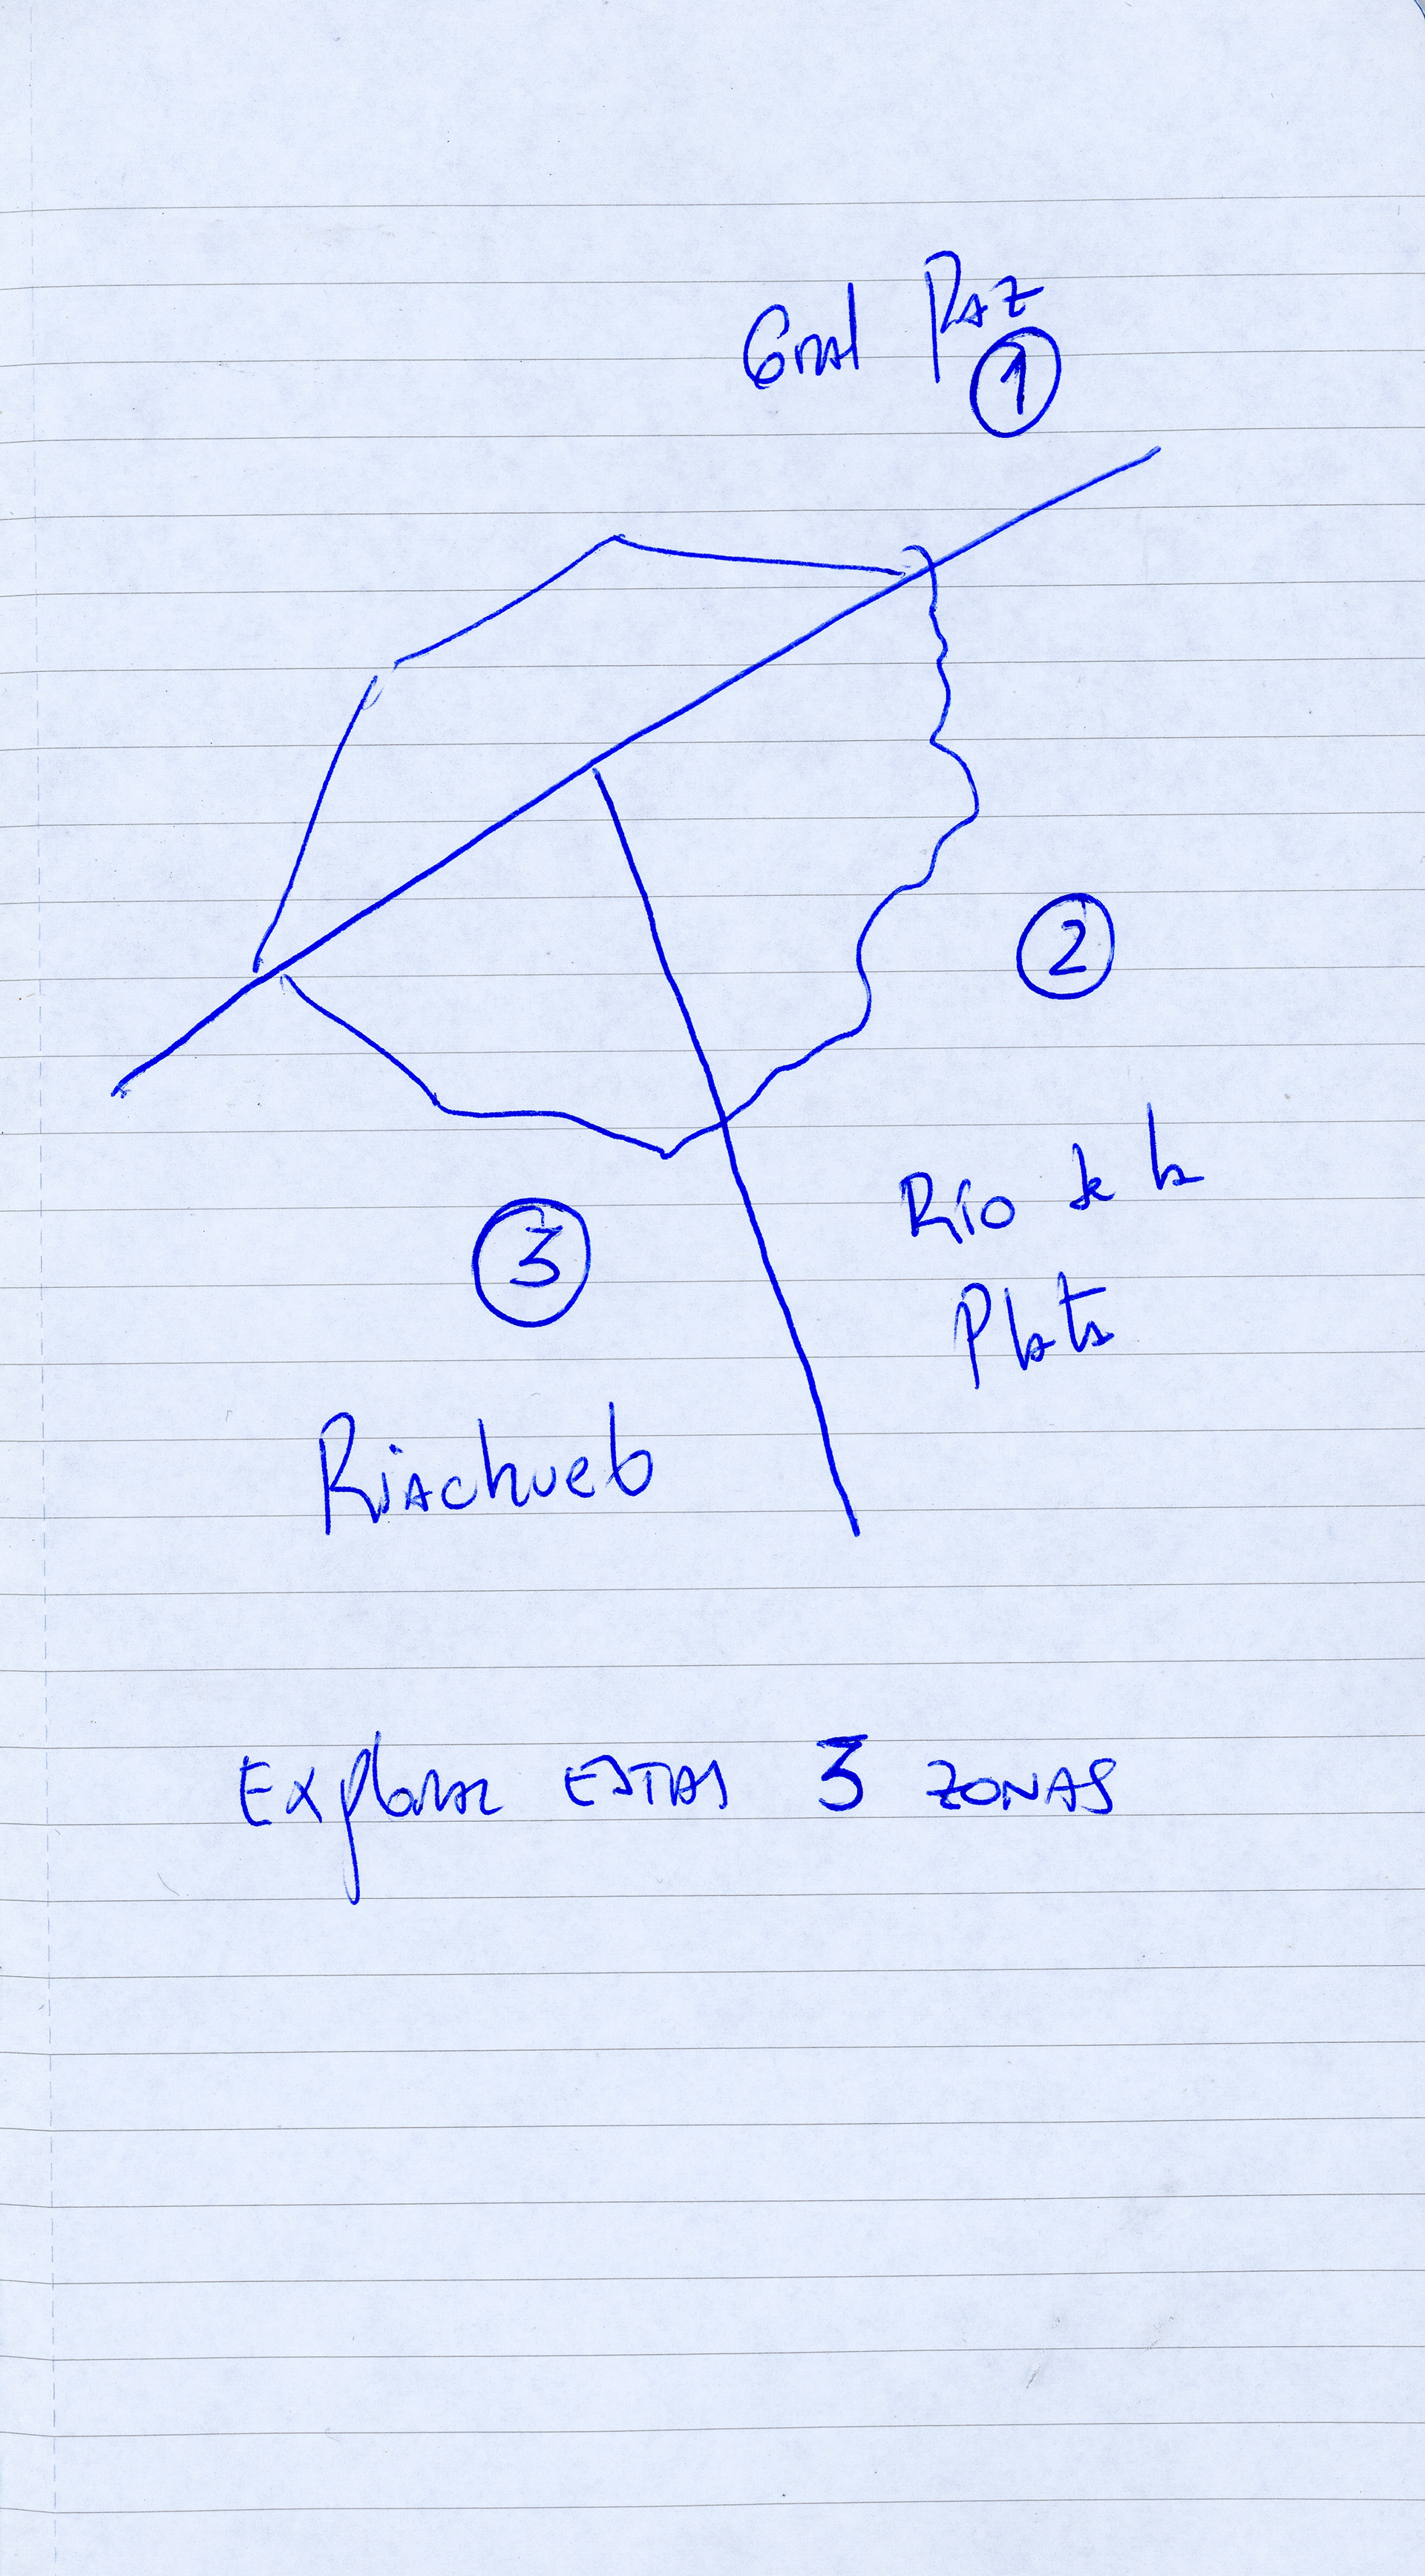 Gral Paz
1
2
Río de la
Plata
3
Riachuelo
Explorar estas 3 zonas